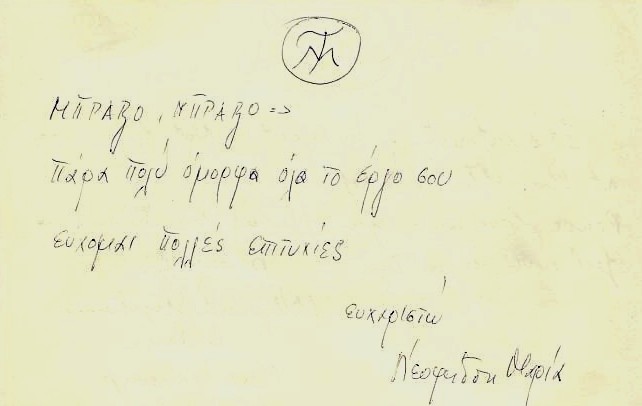 ΜΠΡΑΒΟ, ΜΠΡΑΒΟ =>
Πάρα πολύ όμορφα όλα το έργο σου
εύχομαι πολλές επιτυχίες
ευχαριστώ
Μαρία